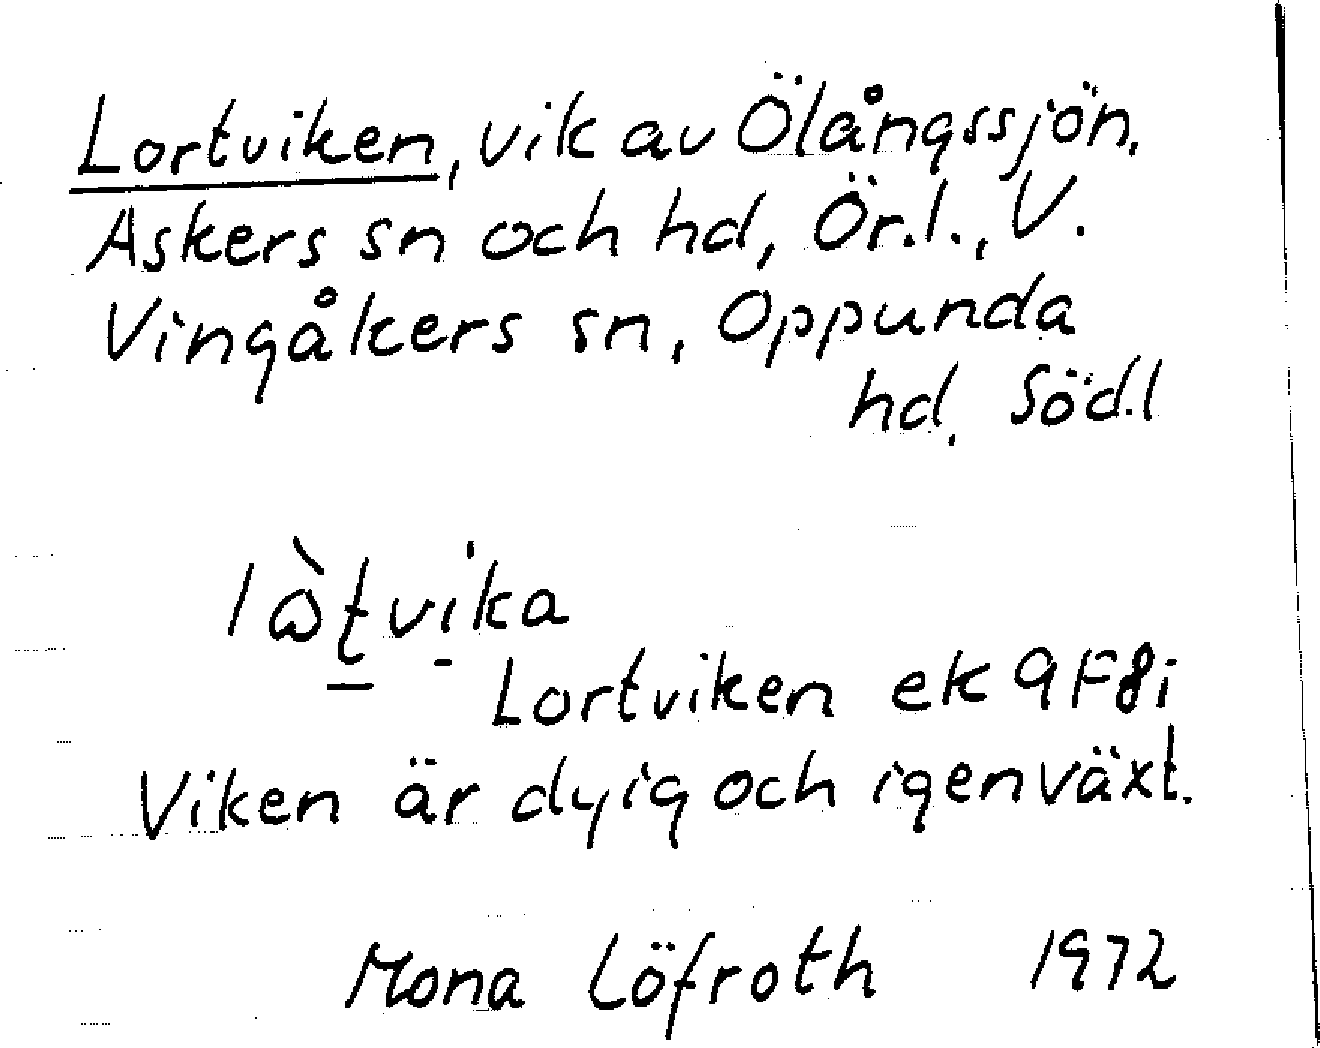 Lortviken, vik av Ölångssjön.
Askers sn och hd, Ör.l., V.
Vingåkers sn, Oppunda
hd, Söd.l
Lortviken ek 9F8i
Viken är dyig och igenväxt.
Mona Löfroth 1972